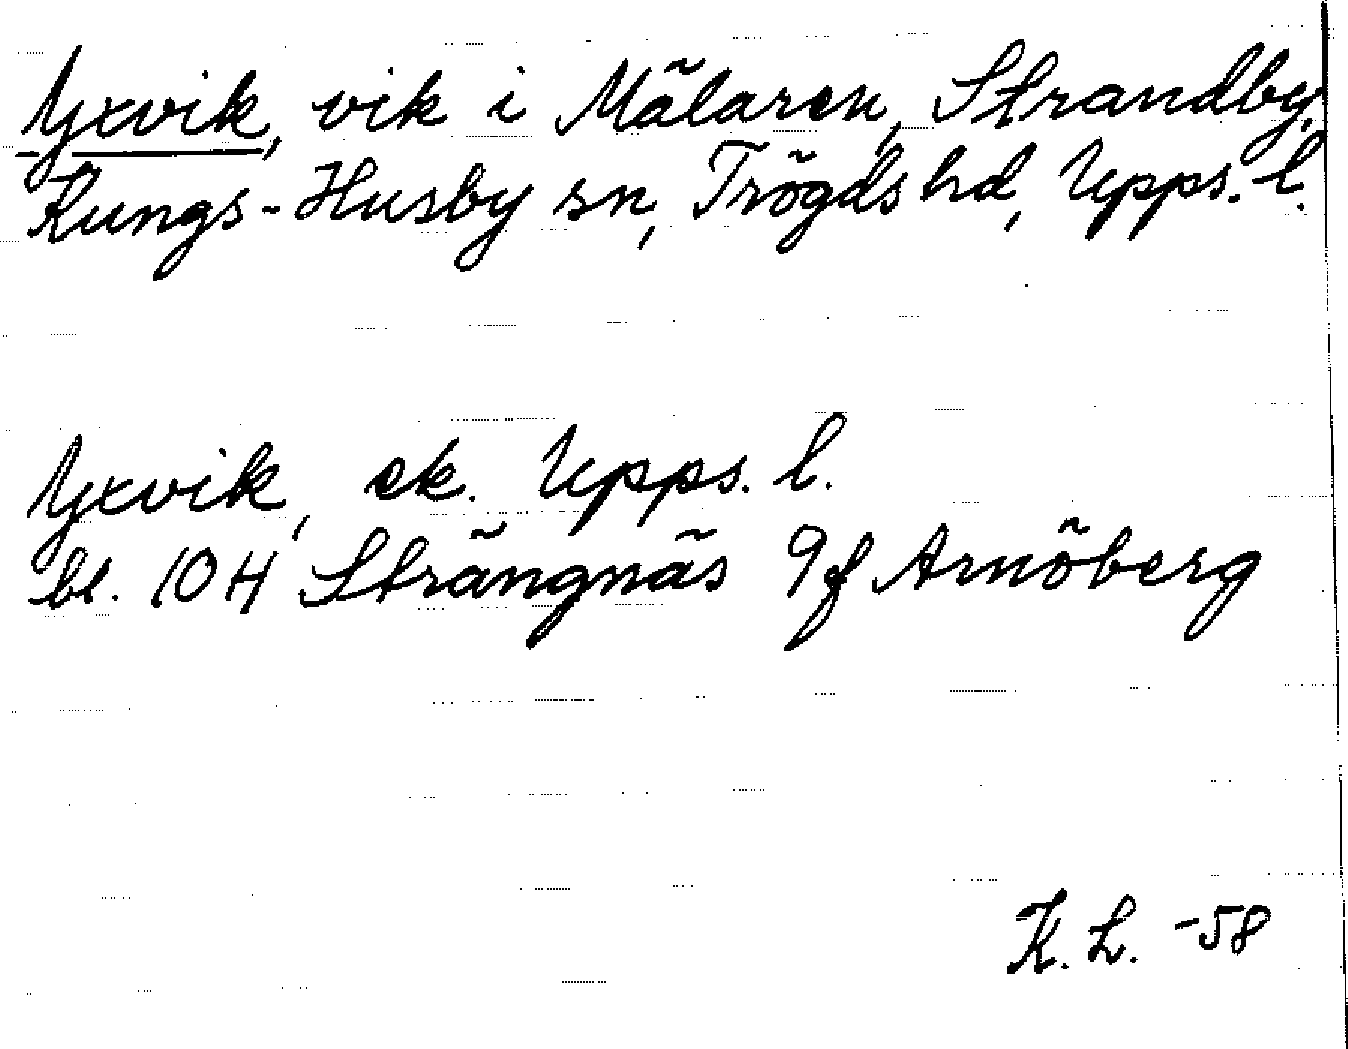 Yxvik, vik i Mälaren, Strandby,
Kungs-Husby sn, Trögds hd, Upps. l.
Yxvik, ek. Upps. l.
bl. 10 H Strängnäs 9f Arnöberg
K. L. -58